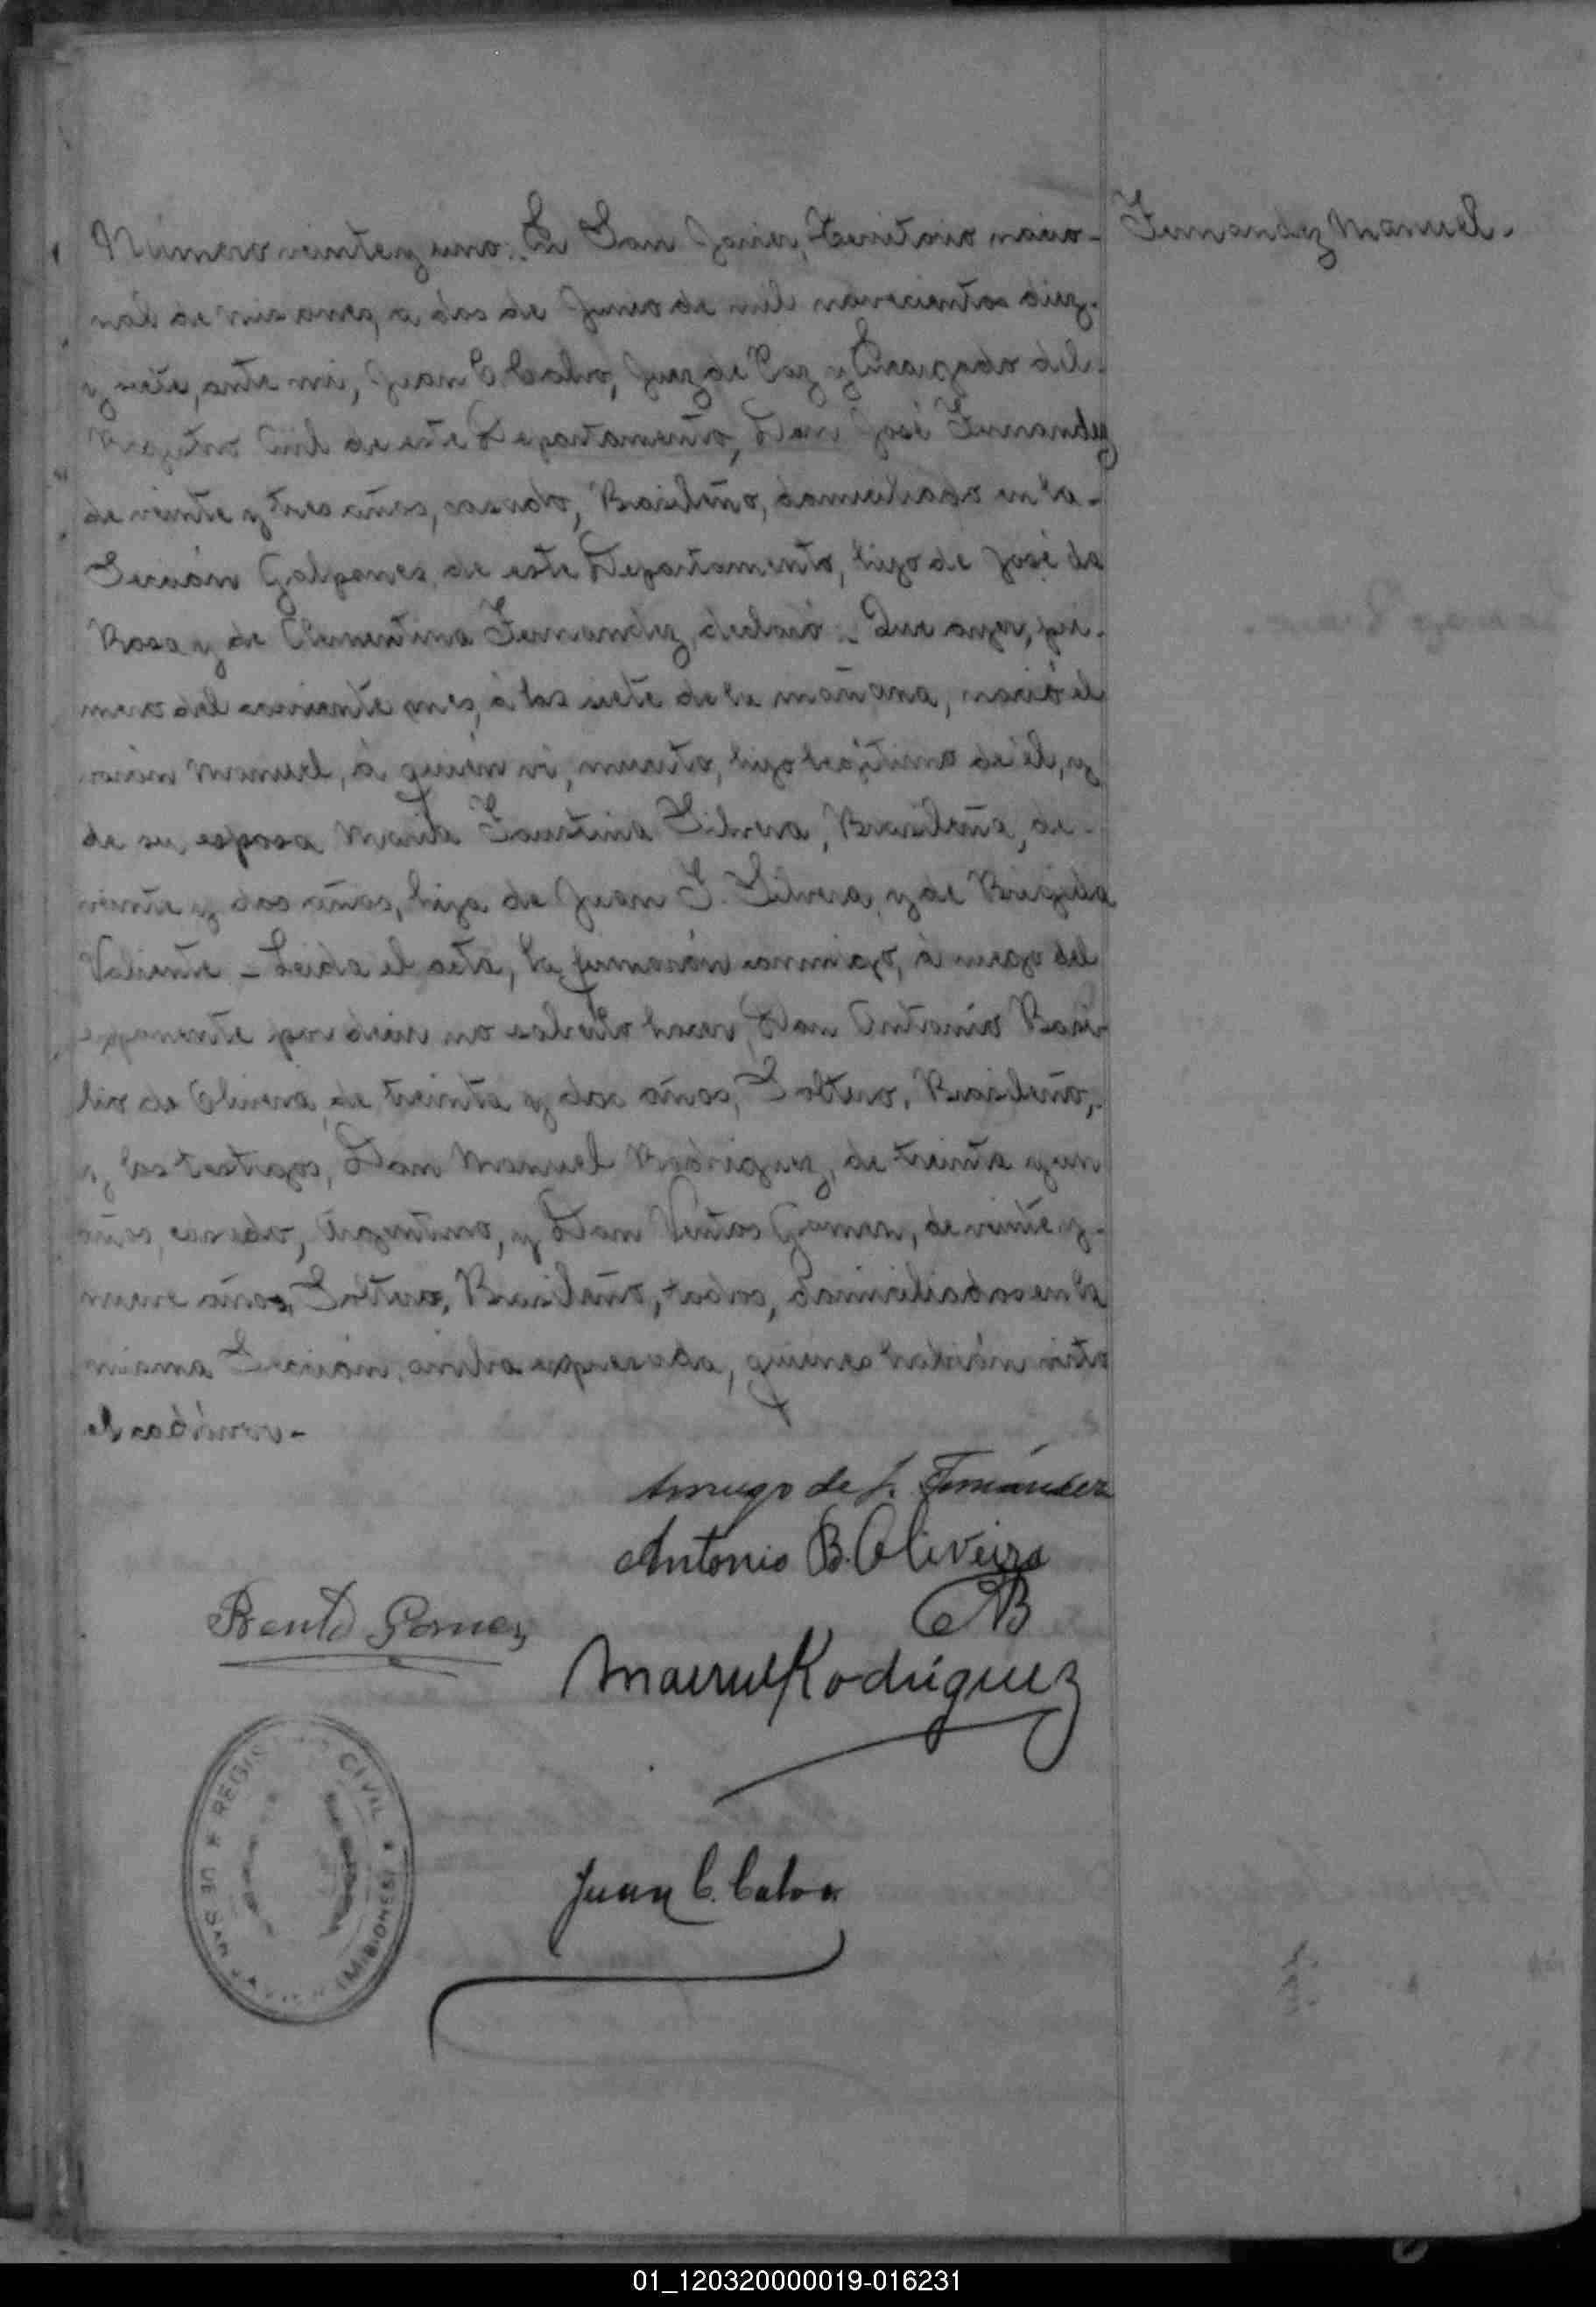 Número veintey uno. En San Javier, Territorio nacio-
nal de Misiones, a dos de Junio de mil novecientos diez
y siete, ante mi, Juan C. Calvo, Juez de Paz y Encargado del
Registro Civil de este Departamento, Don José Fernandez
de veinte y tres años, casado, Brasileño, domiciliado en la
Sección Galpones, de este Departamento, hijo de José da
Rosa y de Clementina Fernandez, declaró: Que ayer, pri-
mero del corriente mes, á las siete de la mañana, nació el
váron Manuel, á quien ví, muerto, hijo legítimo de él, y
de su esposa María Faustina Silvera, Brasileña, de
veinte y dos años, hija de Juan S. Silvera, y de Brigida
Valiente - Leída el acta, la firmarón conmigo, á ruego del
exponente por decir no saberlo hacer, Don Antonio Basi
lio de Oliveira, de treinta y dos años, Soltero, Brasileño,
y los testigos, Don Manuel Rodriguez, de treinta y un
años, casado, Argentino, y Don Bento Gomes, de veinte y
nueve años, Soltero, Brasileño, todos, domiciliados en la
misma Sección, arriba expresada, quienes han visto
el cadáver.-
Fernandez Manuel.
de J. Fernández
Antonio B. Oliveira
AB
Bento Gomes
Manuel Rodriguez
Juan C. Calvo
REGIS CIVIL
DE SAN (MISIONES)
01_120320000019-016231